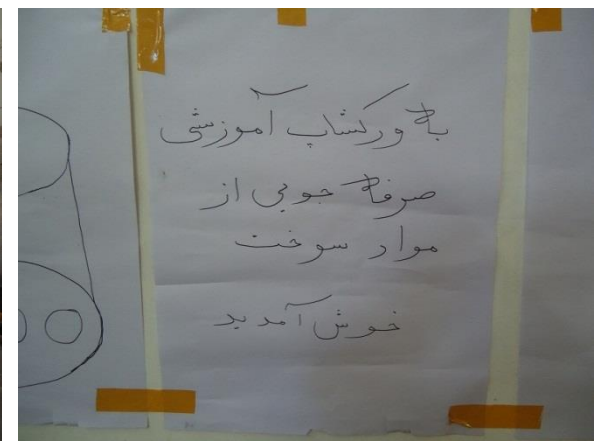 به ورکشاپ آموزشی
صرفه جویی از
مواد سوخت
خوش آمدید